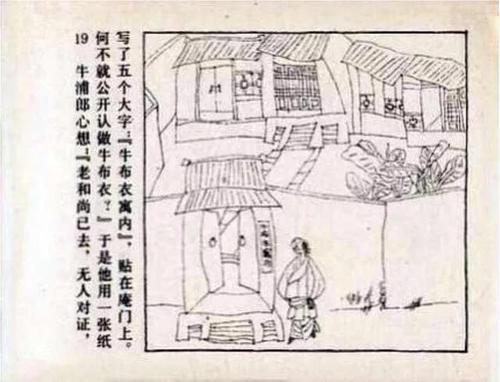 19 牛浦郎心想：『老和尚已去，无人对证，
何不就公开认做牛布衣？』于是他用一张纸
写了五个大字：『牛布衣寓内』，贴在庵门上。